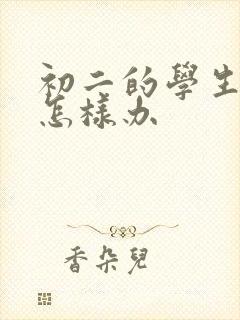 初二的學生
怎樣办
香朵兒